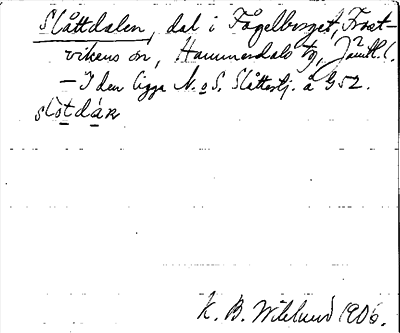 Slåttdalen, dal i Fågelberget, Frost-
vikens sn, Hammerdals tg, Jämtl. l.
— I den ligga N. o S. Slåttertj. å G 52.
slòtdáƞ
K. B. Wiklund 1906.